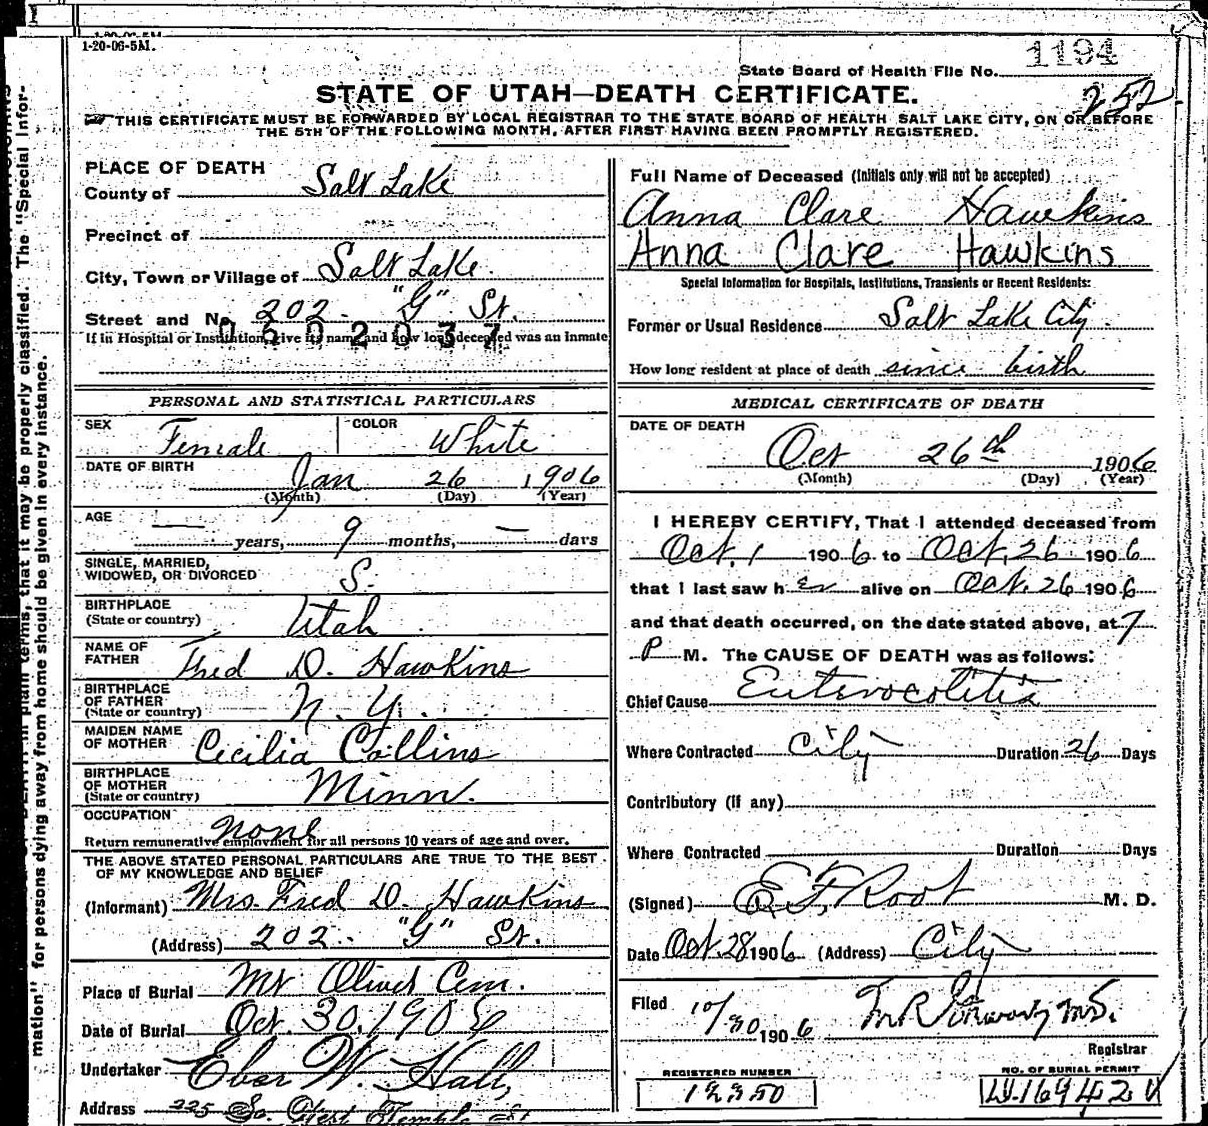 1-20-06-5M.
State Board of Health File No. 1194
252
STATE OF UTAH—DEATH CERTIFICATE.
THIS CERTIFICATE MUST BE FORWARDED BY LOCAL REGISTRAR TO THE STATE BOARD OF HEALTH SALT LAKE CITY, ON OR BEFORE
THE 5TH OF THE FOLLOWING MONTH, AFTER FIRST HAVING BEEN PROMPTLY REGISTERED.
mation" for persons dying away from home should be given in every instance.
plain terms, that it may be properly classified. The "Special Infor-
PLACE OF DEATH
County of Salt Lake
Precinct of
City, Town or Village of Salt Lake.
Street and No. 202. "G" St.
0502037
If in Hospital or Institution, give its name and how long deceased was an Inmate
PERSONAL AND STATISTICAL PARTICULARS
SEX Female COLOR White
DATE OF BIRTH Jan 26 1906
(Month) (Day) (Year)
AGE — years, 9 months, — days
SINGLE, MARRIED,
WIDOWED, OR DIVORCED S.
BIRTHPLACE
(State or country) Utah
NAME OF
FATHER Fred D. Hawkins
BIRTHPLACE
OF FATHER
(State or country) N.Y.
MAIDEN NAME
OF MOTHER Cecilia Collins
BIRTHPLACE
OF MOTHER
(State or country) Minn.
OCCUPATION none
Return remunerative employment for all persons 10 years of age and over.
THE ABOVE STATED PERSONAL PARTICULARS ARE TRUE TO THE BEST
OF MY KNOWLEDGE AND BELIEF
(Informant) Mrs. Fred D. Hawkins
(Address) 202. "G" St.
Place of Burial Mt Olivet Cem.
Date of Burial Oct. 30, 1906
Undertaker Eber W. Hall,
Address 225 So. West Temple St
Full Name of Deceased (Initials only will not be accepted)
Anna Clare Hawkins
Anna Clare Hawkins
Special Information for Hospitals, Institutions, Transients or Recent Residents:
Former or Usual Residence Salt Lake City.
How long resident at place of death since birth
MEDICAL CERTIFICATE OF DEATH
DATE OF DEATH
Oct 26th 1906
(Month) (Day) (Year)
I HEREBY CERTIFY, That I attended deceased from
Oct. 1 1906. to Oct. 26 1906
that I last saw her alive on Oct. 26 1906
and that death occurred, on the date stated above, at 7
P M. The CAUSE OF DEATH was as follows:
Chief Cause Enterocolitis
Where Contracted City Duration 26 Days
Contributory (if any)
Where Contracted Duration Days
(Signed) E. F. Root M. D.
Date Oct. 28 1906 (Address) City
Filed 10/30 1906 M.D.
Registrar
REGISTERED NUMBER
12350
NO. OF BURIAL PERMIT